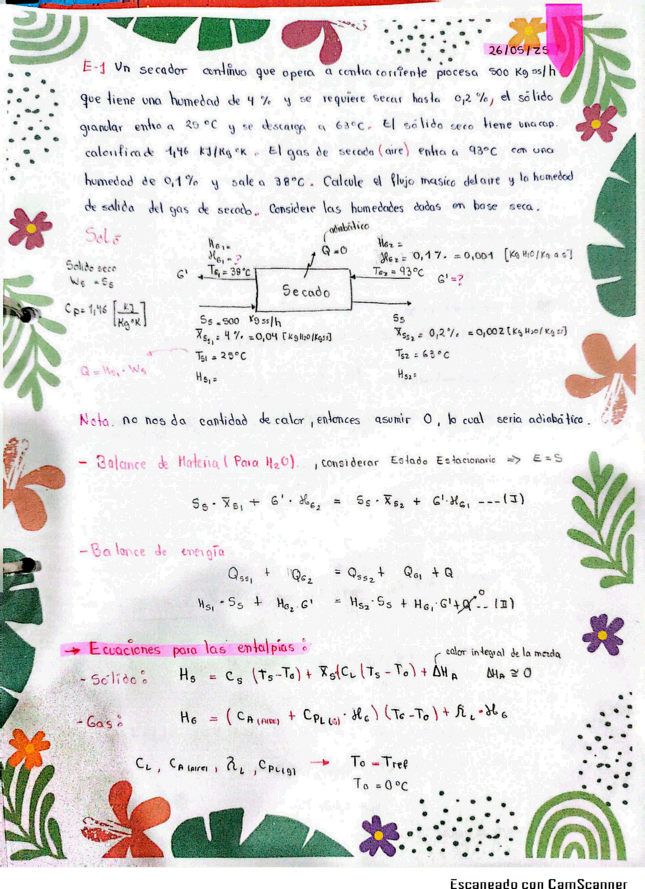 26/05/25
E-1 Un secador continuo que opera a contracorriente procesa 500 Kg ss/h
que tiene una humedad de 4 % y se requiere secar hasta 0,2 %, el sólido
granular entra a 25 °C y se descarga a 63°C. El sólido seco tiene una cap.
calorífica de 1,46 KJ/Kg °K. El gas de secado (aire) entra a 93°C con una
humedad de 0,1 % y sale a 38°C. Calcule el flujo masico del aire y la humedad
de salida del gas de secado. Considere las humedades dadas en base seca.
Solº
adiabático
Q=0
HG1=
ℋG1=?
TG1=38°C
G'
HG2=
ℋG2=0,1% = 0,001 [Kg H2O/Kg a s]
TG2=93°C
G'=?
Solido seco
Ws = Ss
Cp=1,46 [KJ/Kg°K]
Secado
Ss=500 Kg ss/h
X̄s1 = 4 % = 0,04 [Kg H2O/Kgss]
Ts1 = 25°C
Hs1=
Ss
X̄s2 = 0,2% = 0,002 [Kg H2O/Kg ss]
Ts2 = 63°C
Hs2=
Q=Hs1·Ws
Nota. no nos da cantidad de calor, entonces asumir 0, lo cual seria adiabático.
- Balance de Materia (Para H2O). , considerar Estado Estacionario => E=S
Ss·X̄s1 + G'·ℋG2 = Ss·X̄s2 + G'·ℋG1 ---(I)
- Balance de energía
Qss1 + QG2 = Qss2 + QG1 + Q
Hs1·Ss + HG2·G' = Hs2·Ss + HG1·G' + Q 0 -- (II)
→ Ecuaciones para las entalpías:
calor integral de la mezcla
- Sólido: Hs = Cs (Ts-To) + X̄s(CL (Ts-To) + ΔHA ΔHA ≅ 0
- Gas: HG = (CA(AIRE) + CPL(g)·ℋG) (TG-To) + λL·ℋG
CL, CA(AIRE), λL, CPL(g) → To = Tref
To = 0°C
Escaneado con CamScanner